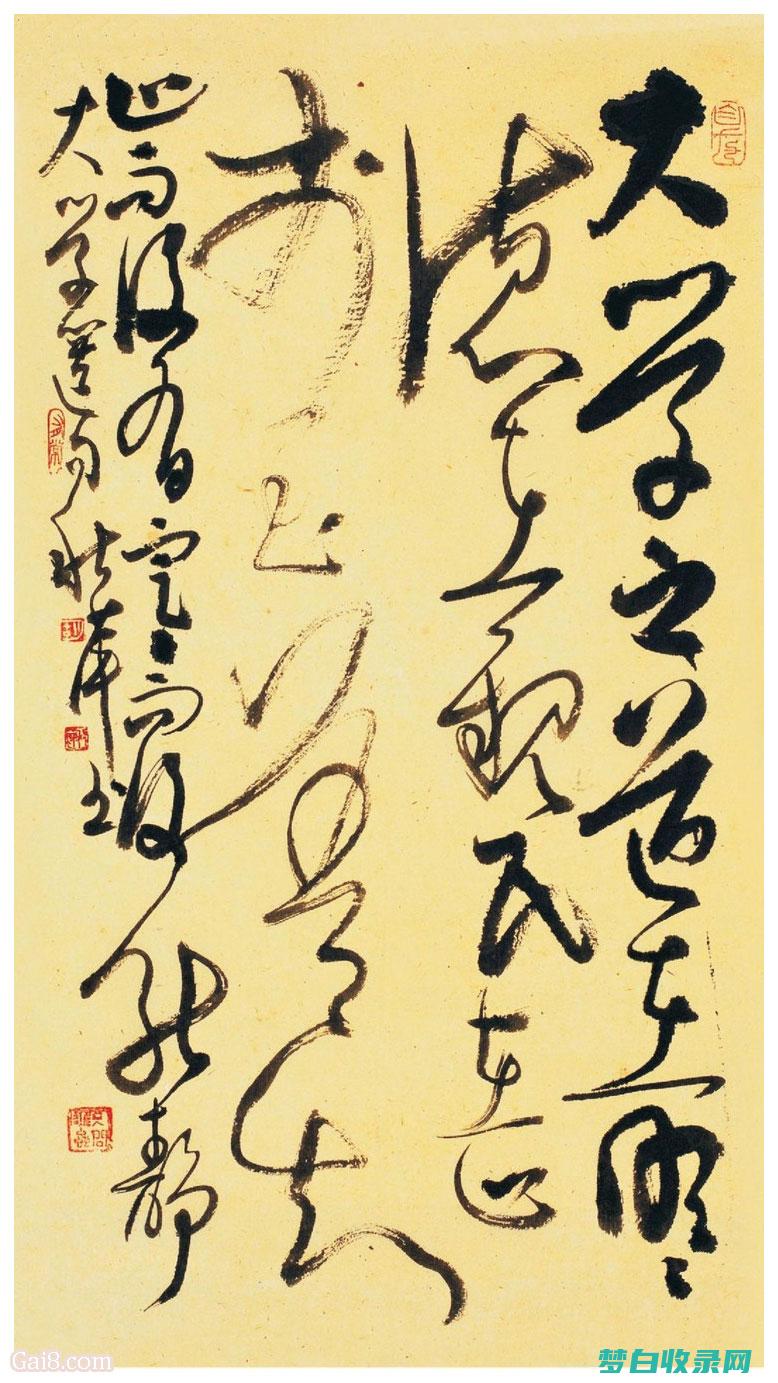 大学之道在明〻
德在親民在止
於至善知
止而後有定〻而後能静
大学選句
书
Gai8.com
梦白收录网